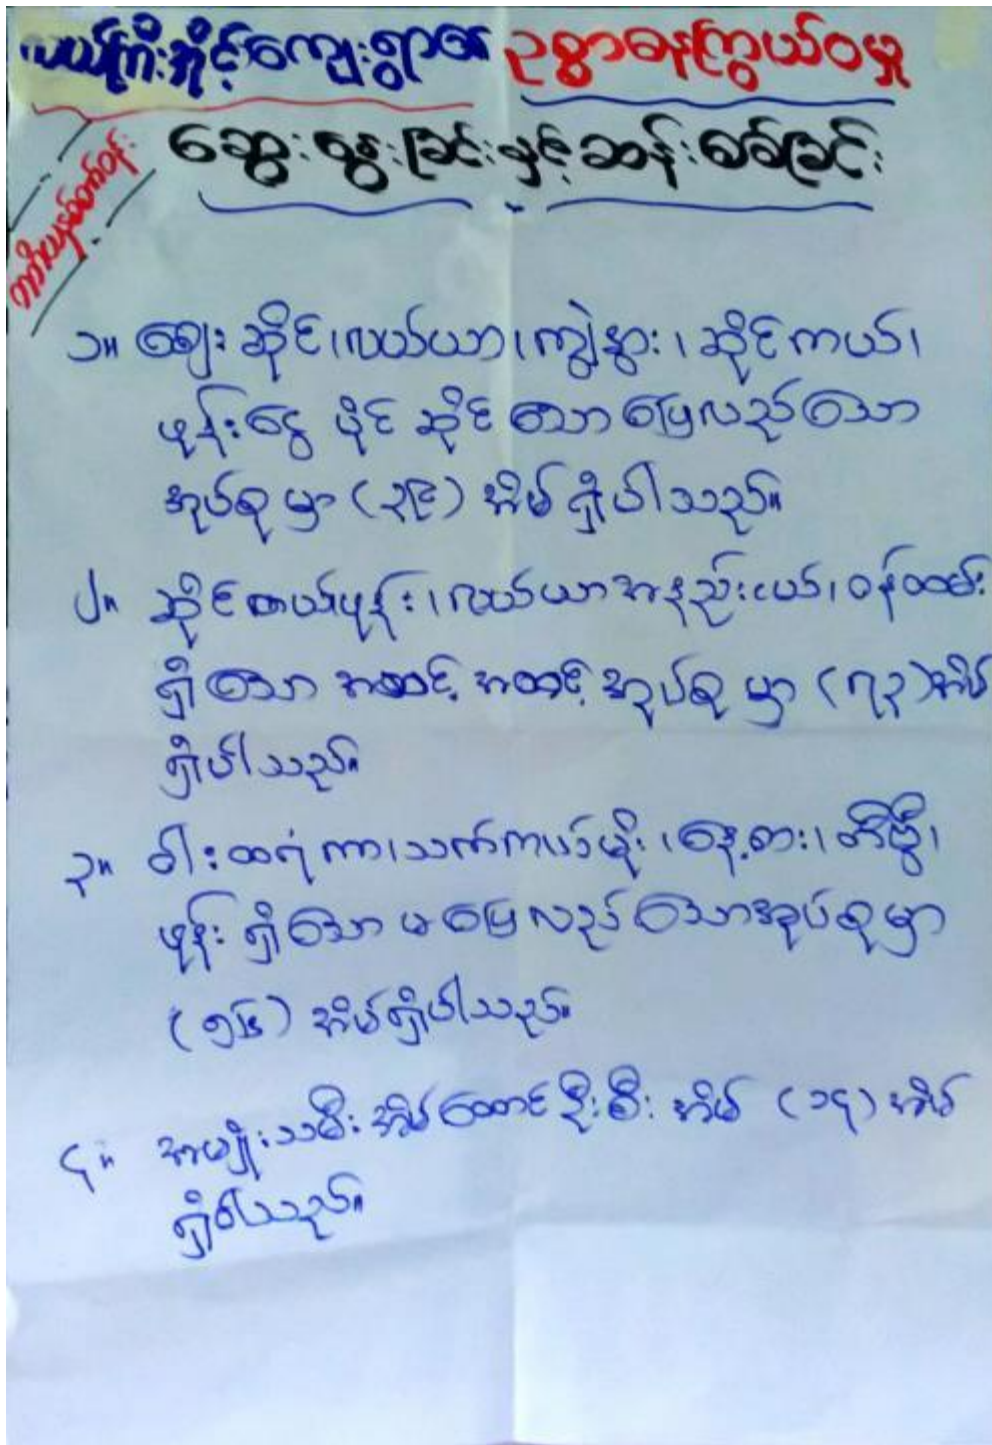 လယ်ကြီးအိုင့်ကျေးရွာ၏ ဥစ္စာဓနကြွယ်ဝမှု
ဆွေးနွေးခြင်းနှင့်ဆန်းစစ်ခြင်း
၁။ ဈေးဆိုင်၊လယ်ယာ၊ကျွဲနွား၊ဆိုင်ကယ်၊
ဖုန်းငွေ ပိုင်ဆိုင်သော ပြေလည်သော
အုပ်စုမှာ (၃၉) အိမ်ရှိပါသည်။
၂။ ဆိုင်ကယ်ဖုန်း၊လယ်ယာအနည်းငယ်၊ဝန်ထမ်း
ရှိသော အဆင့်အတင့်အုပ်စုမှာ (၇၃)အိမ်
ရှိပါသည်။
၃။ ဝါးထရံကာ၊သက်ကယ်မိုး၊နေ့စား၊တီဗွီ၊
ဖုန်းရှိသော မပြေလည်သောအုပ်စုမှာ
(၅၆) အိမ်ရှိပါသည်။
၄။ အမျိုးသမီးအိမ်ထောင်ဦးစီး အိမ် (၁၄) အိမ်
ရှိပါသည်။